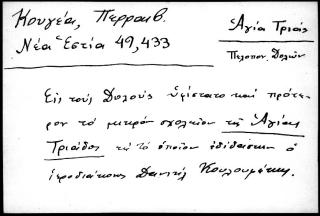 Κουγέα, Περραιβ.
Νέα Ἑστία 49,433
Ἁγία Τριάς
Πελοπον. Δολῶν
Εἰς τοὺς Δολοὺς ὑφίστατο καὶ πρότε-
ρον τὸ μικρὸν σχολεῖον τῆς Ἁγίας
Τριάδος εἰς τὸ ὁποῖον ἐδίδασκεν ὁ
ἱεροδιάκονος Δανιὴλ Κουλουμάκης.